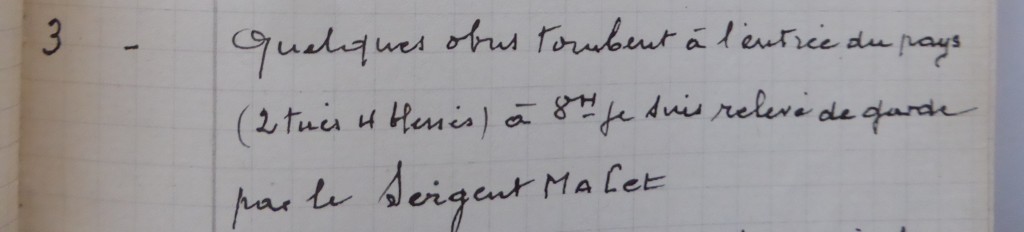 3 - Quelques obus tombent à l'entrée du pays
(2 tués 4 blessés) à 8H je suis relevé de garde
par le Sergent MALet